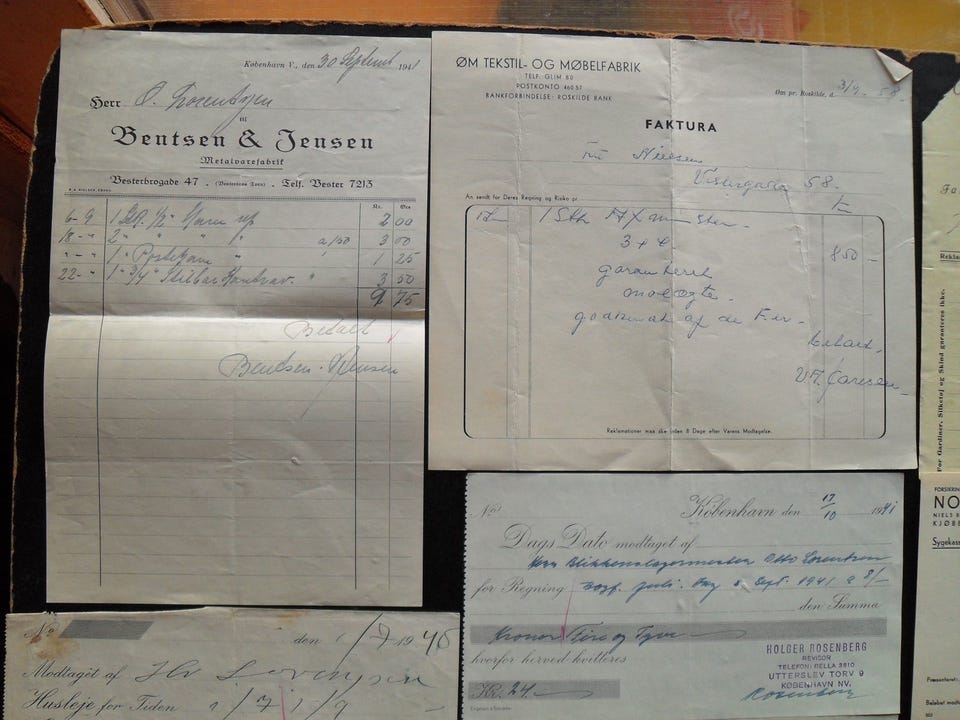 København V., den 30 Septembr 1941
Herr O. Lorentzen
til
Bentsen & Jensen
Metalvarefabrik
Besterbrogade 47 . (Bentzens Tove) . Telf. Bester 7213
Kr. Øre
6-9 1 1/2" 2 00
18-" 2 " " " " a 150 3 00
1 " 1 25
22-" 1 " 3/4" " 3 50
9 75
Betalt
Bentsen & Jensen
ØM TEKSTIL- OG MØBELFABRIK
TELF. GLIM 80
POSTKONTO 460 57
BANKFORBINDELSE: ROSKILDE BANK
Øm pr. Roskilde, d. 3/9 58.
FAKTURA
Fru Nielsen
58.
K
An sendt for Deres Regning og Risiko pr.
1 Stk Axminster
850 -
3 x 4
garanteret
møløgte.
af de Fru-
betalt.
Reklamationer maa ske inden 8 Dage efter Varens Modtagelse.
For Gardiner, Silketøj og Skind garanteres ikke.
Fa
Rekla
FORSIKRIN
NO
NIELS B
KJØBE
Sygekass
Præsenteret:
Beløbet modt
No
København den 17/10 1941
Dags Dato modtaget af
Herr Blikkenslagermester Otto Lorentzen
for Regning Juli. Aug & Sept. 1941 a 8/-
den Summa
Kroner Fire og Tyve
hvorfor herved kvitteres
Kr. 24
HOLGER ROSENBERG
REVISOR
TELEFON: BELLA 3810
UTTERSLEV TORV 9
KØBENHAVN NV.
Rosenberg
No
den 1/7 1946
Modtaget af Hr Lorenzen
Husleje for Tiden 1/7 1/9